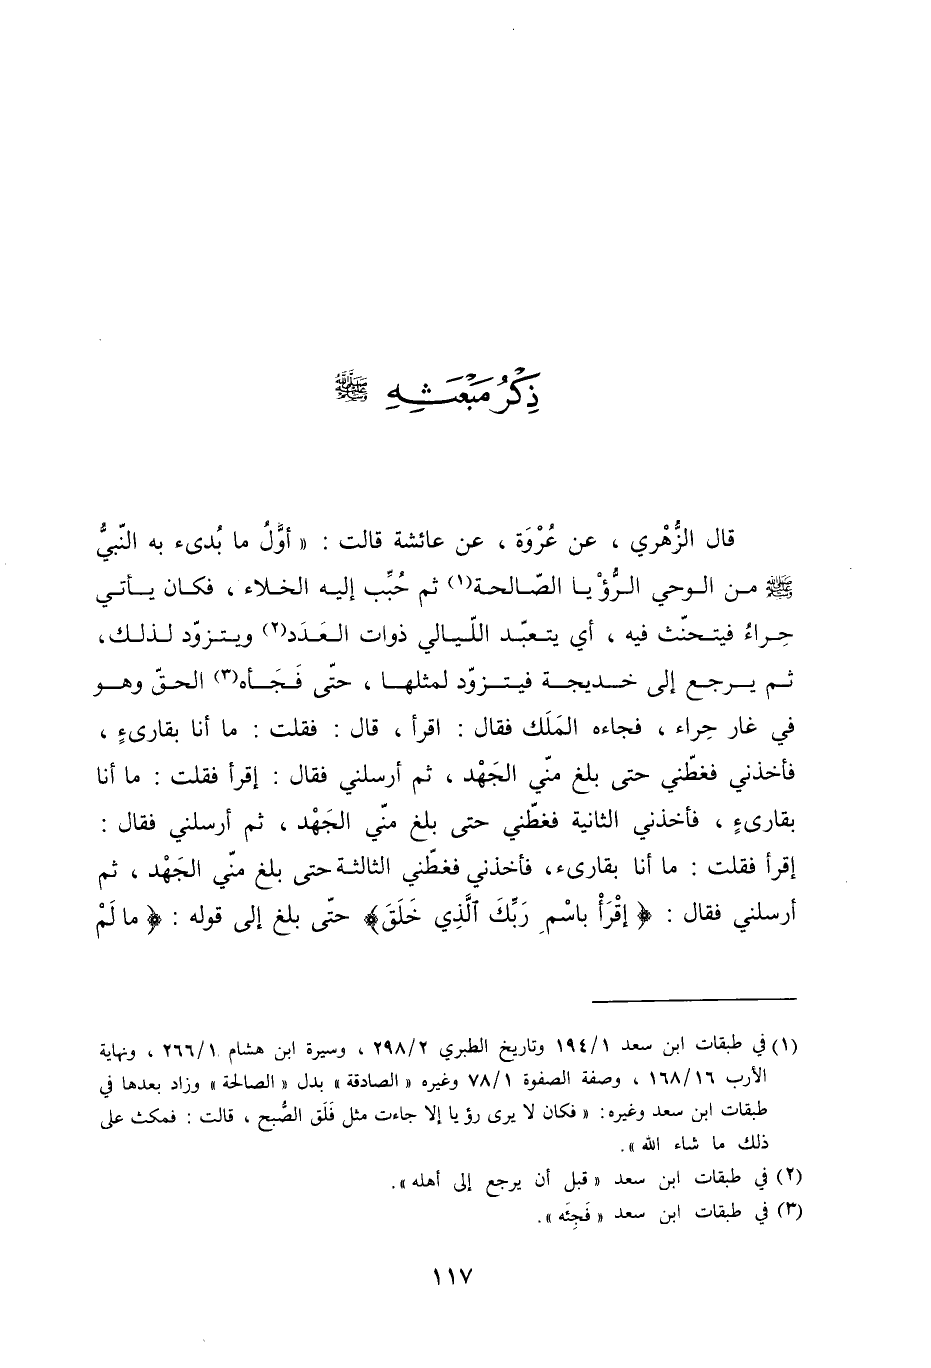 ذِكْرُ مَبْعَثِهِ ﷺ
قال الزُّهْري ، عن عُرْوَة ، عن عائشة قالت : « أوَّلُ ما بُدىء به النّبيُّ
ﷺ من الوحي الرُّؤْيا الصّالحة(١) ثم حُبِّب إليه الخلاء ، فكان يأتي
حِراءُ فيتحنّث فيه ، أي يتعبّد اللّيالي ذوات العَدَد(٢) ويتزوّد لذلك،
ثم يرجع إلى خديجة فيتزوّد لمثلها ، حتّى فَجَأه(٣) الحقّ وهو
في غار حِراء ، فجاءه المَلَك فقال : اقرأ ، قال : فقلت : ما أنا بقارىءٍ ،
فأخذني فغطّني حتى بلغ منّي الجَهْد ، ثم أرسلني فقال : إقرأ فقلت : ما أنا
بقارىءٍ ، فأخذني الثانية فغطّني حتى بلغ منّي الجَهْد ، ثم أرسلني فقال :
إقرأ فقلت : ما أنا بقارىء، فأخذني فغطّني الثالثة حتى بلغ منّي الجَهْد ، ثم
أرسلني فقال : ﴿ إقْرَأْ باسْمِ رَبِّكَ ٱلَّذِي خَلَقَ﴾ حتّى بلغ إلى قوله : ﴿ ما لَمْ
(١) في طبقات ابن سعد ١٩٤/١ وتاريخ الطبري ٢٩٨/٢ ، وسيرة ابن هشام ٢٦٦/١ ، ونهاية
الأرب ١٦٨/١٦ ، وصفة الصفوة ٧٨/١ وغيره « الصادقة » بدل « الصالحة » وزاد بعدها في
طبقات ابن سعد وغيره: « فكان لا يرى رؤيا إلا جاءت مثل فَلَق الصُّبح ، قالت : فمكث على
ذلك ما شاء الله ».
(٢) في طبقات ابن سعد « قبل أن يرجع إلى أهله ».
(٣) في طبقات ابن سعد « فَجِئَه ».
١١٧